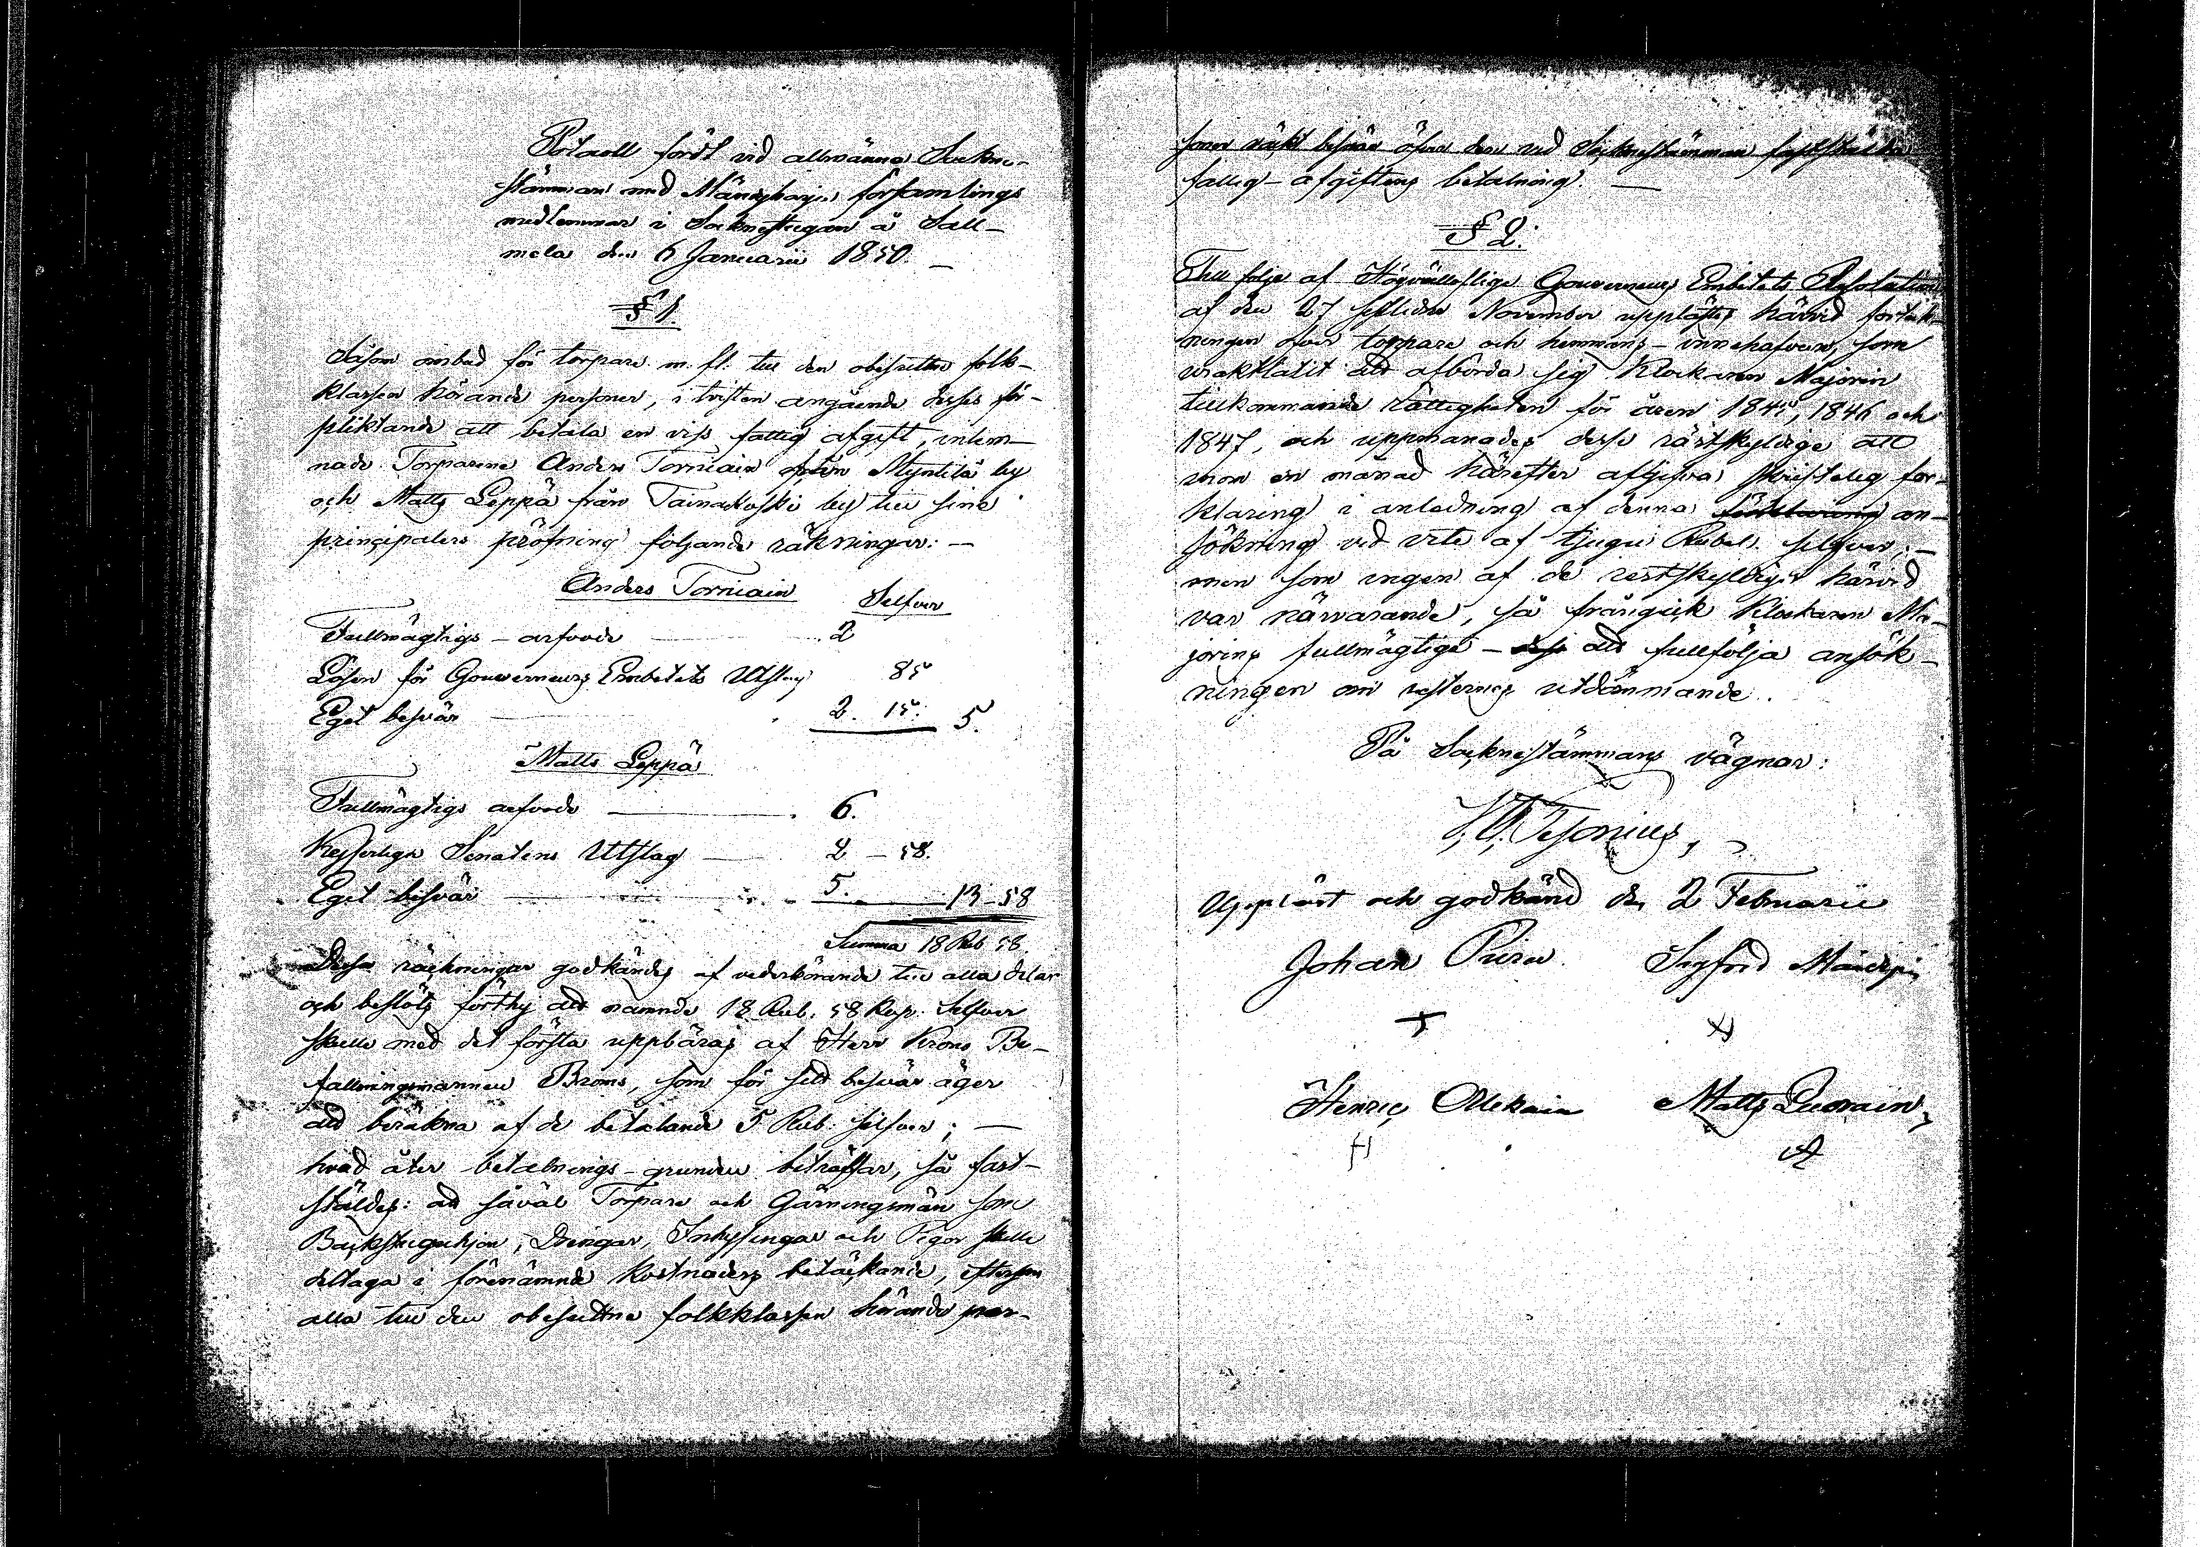 Protocoll fördt vid allmänna Sockne-
stämman med Mäntyharju församlings
medlemmar i Socknestugan å Sall-
mela den 6 Januarii 1850. –
§ 1.
Såsom ombud för torpare m. fl. till den obesuttne folk-
klassen hörande personer, i tvisten angående desses för-
pliktande att betala en viss fattig afgift, inlem-
nade Torparene Anders Torniain från Myntilä by
och Matts Leppä från Tainakoski by till sine
principalers pröfning följande räkningar: –
Anders Torniain
Silfver
Fullmägtigs – arfvode 2
Lösen för Gouverneurs Embetets Utslag 85
Eget besvär 2. 15. 5.
Matts Leppä
Fullmägtigs arfvode 6.
Kejserliga Senatens Utslag 2 – 58.
Eget besvär 5. 13 – 58
Summa 18 Rub 58.
Dessa räkningar godkändes af vederbörande till alla delar
och beslöts förthy att nämnde 18 Rub. 58 Kop. Silfver
skulle med det första uppbäras af Herr Krono Be-
fallningsmannen Broms, som för sitt besvär äger
att beräkna af de betalande 5 Rub. silfver; –
hvad åter betalnings-grunden beträffar, så fast-
ställdes: att såväl Torpare och Gärningsmän som
Backstuguhjon, Drengar, Inhysingar och Pigor skulle
deltaga i förenämnde kostnaders betäckande, eftersom
alla till den obesuttne folkklassen hörande per-
soner väckt besvär öfver den vid Socknestämman fastställda
fattig-afgiftens betalning. –
§ 2.
Till följe af Högvällofliga Gouverneurs Embetets Resolution
af den 27 sistlidne November upplästes härvid förteck-
ningen öfver torpare och hemmans-innehafvare, som
uraktlåtit att afbörda sig Klockaren Majorin
tillkommande rättigheten för åren 1845, 1846 och
1847, och uppmanades desse rästskyldige att
inom en månad härefter afgifva skriftelig för-
klaring i anledning af denna förklaring an-
sökning vid vite af tjugu Rubel silfver; –
men som ingen af de restskyldige härvid
var närvarande, så frångick Klockaren Ma-
jorins fullmägtige – att fullfölja ansök-
ningen om resternes utdömmande.
På Socknestämmans vägnar:
Uppläst och godkänd den 2 Februarii
Johan Sigfrid
Henric Matts